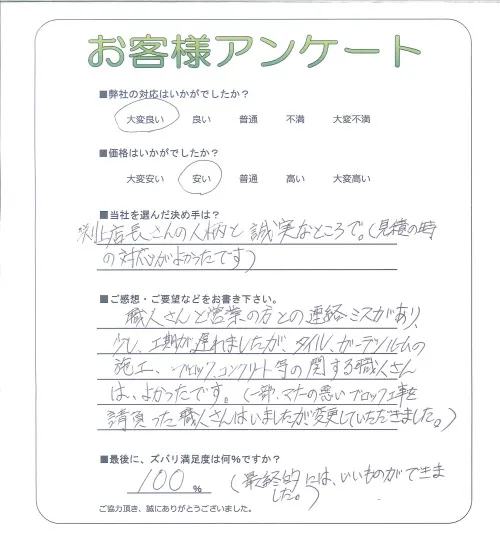 お客様アンケート
■弊社の対応はいかがでしたか?
大変良い 良い 普通 不満 大変不満
■価格はいかがでしたか?
大変安い 安い 普通 高い 大変高い
■当社を選んだ決め手は?
渕上店長さんの人柄と誠実なところで。(見積の時
の対応がよかったです)
■ご感想・ご要望などをお書き下さい。
職人さんと営業の方との連絡ミスがあり、
少し、工期が遅れましたが、タイル、ガーデンルームの
施工、ブロック、コンクリート等の関する職人さん
は、よかったです。(一部、マナーの悪いブロック工事を
請負った職人さんはいましたが変更していただきました。)
■最後に、ズバリ満足度は何%ですか?
100 % (最終的には、いいものができま
した。)
ご協力頂き、誠にありがとうございました。